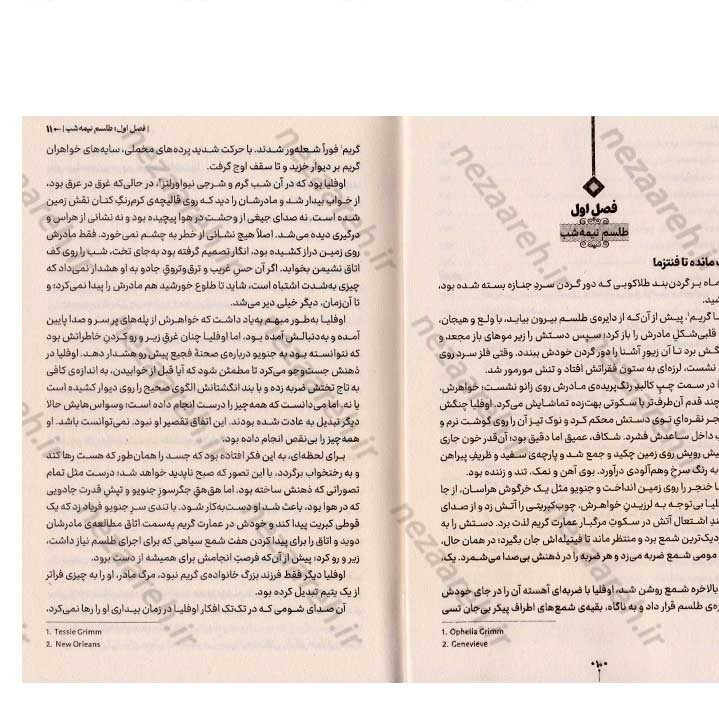 فصل اول
طلسم نیمه‌شب
مانده تا فنتزما
ماه بر گردن‌بند طلاکوبی که دور گردن سردِ جنازه بسته شده بود،
گریم¹، پیش از آن‌که از دایره‌ی طلسم بیرون بیاید، با ولع و هیجان،
قلبی‌شکلِ مادرش را باز کرد؛ سپس دستش را زیر موهای باز مجعد و
برد تا آن زیور آشنا را دور گردن خودش ببندد. وقتی فلز سرد روی
نشست، لرزه‌ای به ستون فقراتش افتاد و تنش مورمور شد.
در سمت چپِ کالبدِ رنگ‌پریده‌ی مادرش روی زانو نشست؛ خواهرش،
چند قدم آن‌طرف‌تر با سکوتی بهت‌زده تماشایش می‌کرد. اوفلیا چنگش
نقره‌ای توی دستش محکم کرد و نوک تیز آن را روی گوشت نرم و
داخل ساعدش فشرد. شکاف، عمیق اما دقیق بود؛ آن‌قدر خون جاری
رویش روی زمین چکید و جمع شد و پارچه‌ی سفید و ظریفِ پیراهن
به رنگ سرخِ وهم‌آلودی درآورد. بوی آهن و نمک، تند و زننده بود.
خنجر را روی زمین انداخت و جنویو مثل یک خرگوش هراسان، از جا
بی‌توجه به لرزیدنِ خواهرش، چوب‌کبریتی را آتش زد و از صدای
اشتعال آتش در سکوتِ مرگبار عمارت گریم لذت برد. دستش را به
نزدیک‌ترین شمع برد و منتظر ماند تا فتیله‌اش جان بگیرد؛ در همان حال،
مومی شمع ضربه می‌زد و هر ضربه را در ذهنش بی‌صدا می‌شمرد. یک،
بالاخره شمع روشن شد، اوفلیا با ضربه‌ای آهسته آن را در جای خودش
طلسم قرار داد و به ناگاه، بقیه‌ی شمع‌های اطراف پیکر بی‌جان تسی
1. Ophelia Grimm
2. Genevieve
۱۰
| فصل اول: طلسم نیمه‌شب | ۱۱
گریم¹ فوراً شعله‌ور شدند. با حرکت شدید پرده‌های مخملی، سایه‌های خواهران
گریم بر دیوار خزید و تا سقف اوج گرفت.
اوفلیا بود که در آن شب گرم و شرجی نیواورلئز²، در حالی‌که غرق در عرق بود،
از خواب بیدار شد و مادرشان را دید که روی قالیچه‌ی کرم‌رنگِ کتان نقش زمین
شده است. نه صدای جیغی از وحشت در هوا پیچیده بود و نه نشانی از هراس و
درگیری دیده می‌شد. اصلاً هیچ نشانی از خطر به چشم نمی‌خورد. فقط مادرش
روی زمین دراز کشیده بود، انگار تصمیم گرفته بود به‌جای تخت، شب را روی کف
اتاق نشیمن بخوابد. اگر آن حسِ غریب و ترق‌وتروقِ جادو به او هشدار نمی‌داد که
چیزی به‌شدت اشتباه است، شاید تا طلوع خورشید هم مادرش را پیدا نمی‌کرد؛ و
تا آن‌زمان، دیگر خیلی دیر می‌شد.
اوفلیا به‌طور مبهم به‌یاد داشت که خواهرش از پله‌های پر سر و صدا پایین
آمده و به‌دنبالش آمده بود، اما اوفلیا چنان غرقِ زیر و رو کردنِ خاطراتش بود
که نتوانسته بود به جنویو درباره‌ی صحنهٔ فجیع پیش رو هشدار دهد. اوفلیا در
ذهنش جست‌وجو می‌کرد تا مطمئن شود که آیا قبل از خوابیدن، به اندازه‌ی کافی
به تاج تختش ضربه زده و با بند انگشتانش الگوی صحیح را روی دیوار کشیده است
یا نه. اما می‌دانست که همه‌چیز را درست انجام داده است؛ وسواس‌هایش حالا
دیگر تبدیل به عادت شده بودند. این اتفاق تقصیر او نبود. نمی‌توانست باشد. او
همه‌چیز را بی‌نقص انجام داده بود.
برای لحظه‌ای، به این فکر افتاده بود که جسد را همان‌طور که هست رها کند
و به رختخواب برگردد، با این تصور که صبح ناپدید خواهد شد؛ درست مثل تمام
تصوراتی که ذهنش ساخته بود. اما هق‌هقِ جگرسوزِ جنویو و تپشِ قدرت جادویی
که در هوا بود، باعث شد او دست‌به‌کار شود. با تندی سر جنویو فریاد زد که یک
قوطی کبریت پیدا کند و خودش در عمارت گریم به‌سمت اتاق مطالعه‌ی مادرشان
دوید و اتاق را برای پیدا کردن هفت شمع سیاهی که برای اجرای طلسم نیاز داشت،
زیر و رو کرد؛ پیش از آن‌که فرصتِ انجامش برای همیشه از دست برود.
اوفلیا دیگر فقط فرزند بزرگ خانواده‌ی گریم نبود. مرگ مادر، او را به چیزی فراتر
از یک یتیم تبدیل کرده بود.
آن صدای شومی که در تک‌تک افکار اوفلیا در زمان بیداری او را رها نمی‌کرد،
1. Tessie Grimm
2. New Orleans
nezaareh.ir